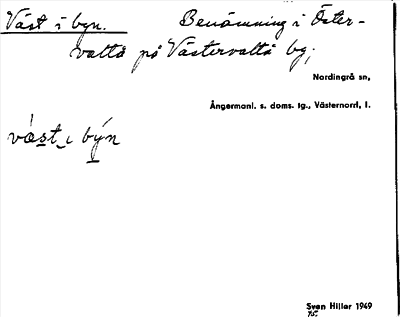 Väst i byn. Benämning i Öster-
valta på Västervalta by;
Nordingrå sn,
Ångermanl. s. doms. tg., Västernorrl, l.
væst i býn
Sven Hiller 1949